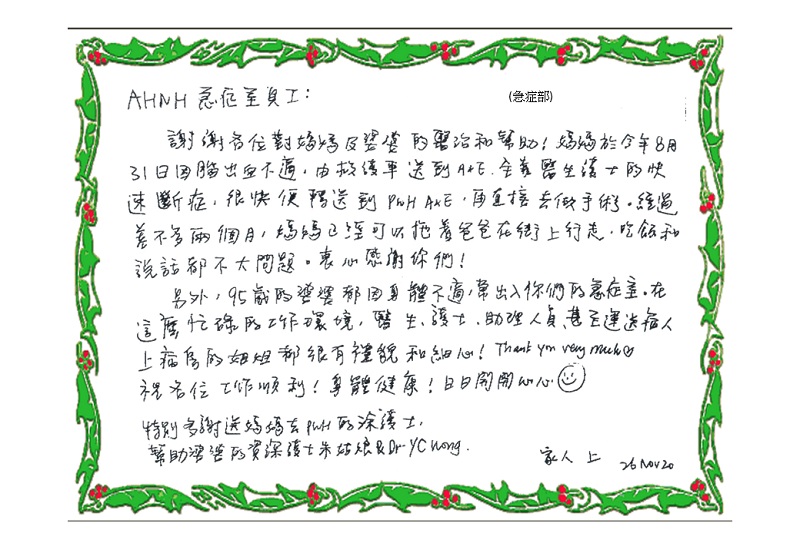 AHNH 急症室員工：
(急症部)
謝謝各位對媽媽及婆婆的醫治和幫助！媽媽於今年8月
31日因腦出血不適，由救護車送到A&E. 全義醫生護士的快
速斷症，很快便轉送到PWH A&E，再直接去做手術。經過
差不多兩個月，媽媽已經可以拖着爸爸在街上行走，吃飯和
說話都不大問題。衷心感謝你們！
另外，95歲的婆婆都因身體不適，常出入你們的急症室。在
這麼忙碌的工作環境，醫生、護士、助理人員甚至運送病人
上病房的姐姐都很有禮貌和細心！Thank you very much
祝各位工作順利！身體健康！日日開開心心
特別多謝送媽媽去PWH的涂護士，
幫助婆婆的資深護士朱姑娘&Dr YC Wong.
家人 上
26 Nov 20